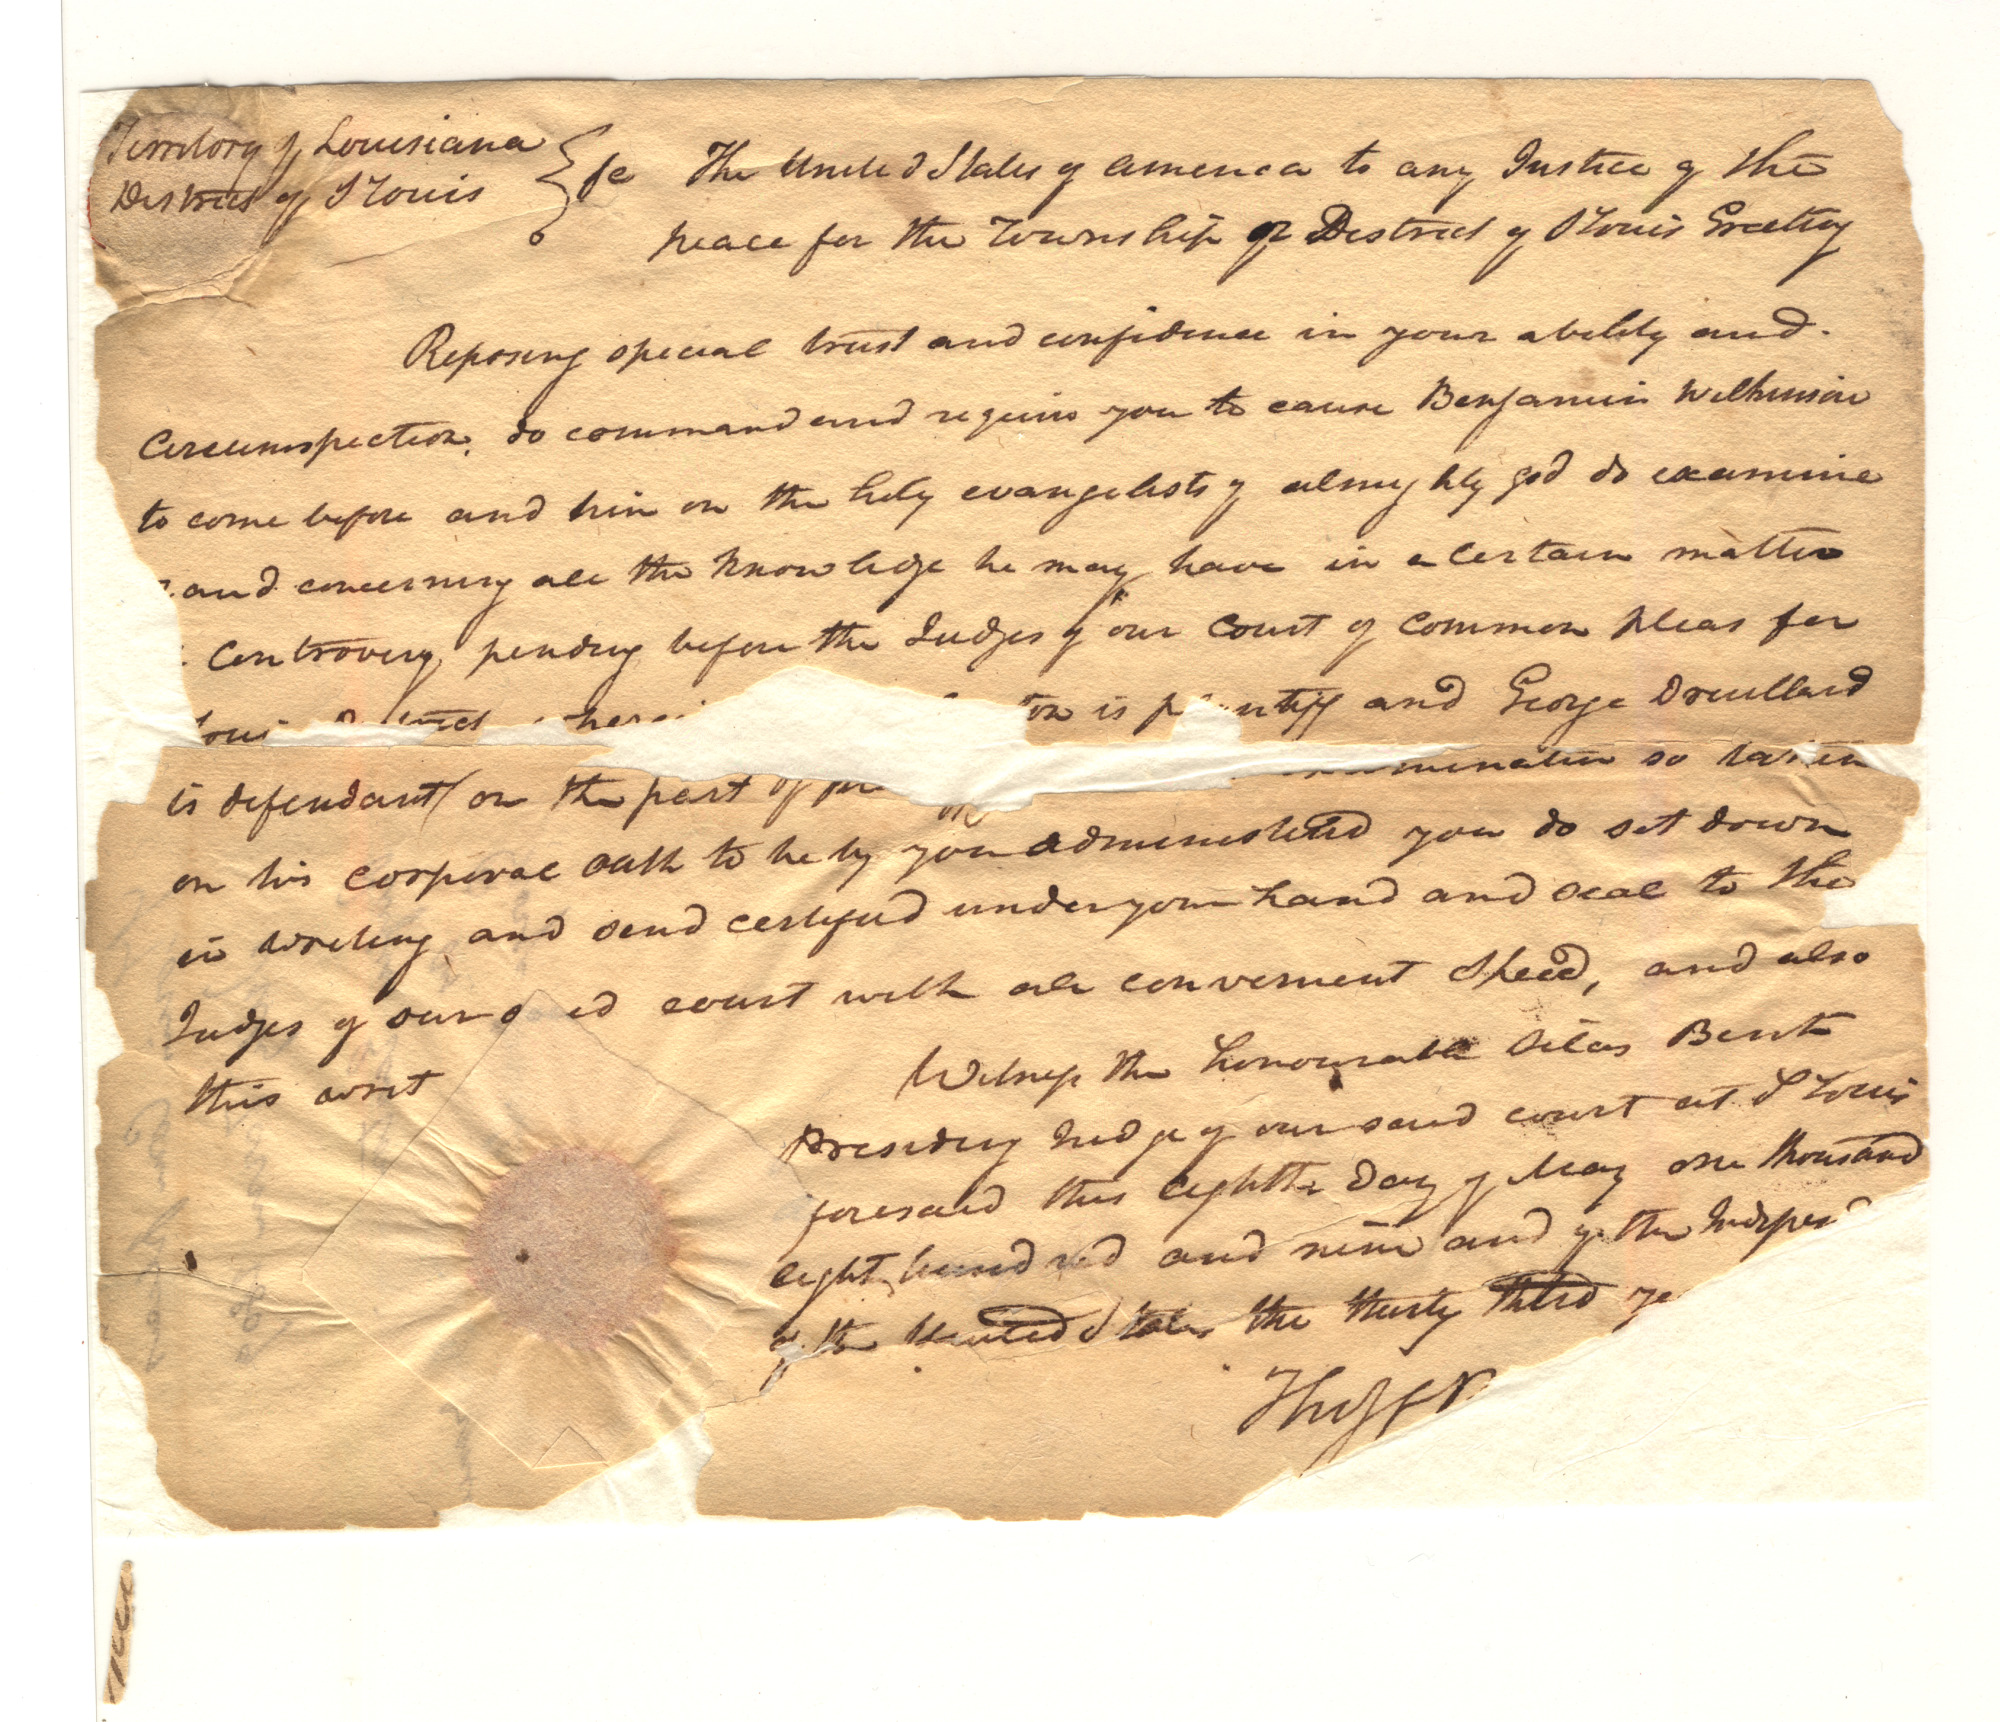 Territory of Louisiana
District of St Louis
Sc The United States of America to any Justice of the
peace for the Township of District of St Louis Greeting
Reposing special trust and confidence in your ability and
Circumspection, do command and require you to cause Benjamin Wilkinson
to come before and him on the holy evangelists of almighty god do examine
and concerning all the knowledge he may have in a certain matter
Controversy pending before the Judges of our Court of Common Pleas for
is plaintiff and George Drouillard
is defendant on the part of so taken
on his corporal oath to be by you administered you do set down
in writing and send certified under your hand and seal to the
Judges of our court with all convenient Speed, and also
this writ
Witness the honourable Silas Bent
Presiding Judge of our said court at St Louis
foresaid this eighth day of May one thousand
eight hundred and nine and of the Indepen
of the United States the thirty third ye